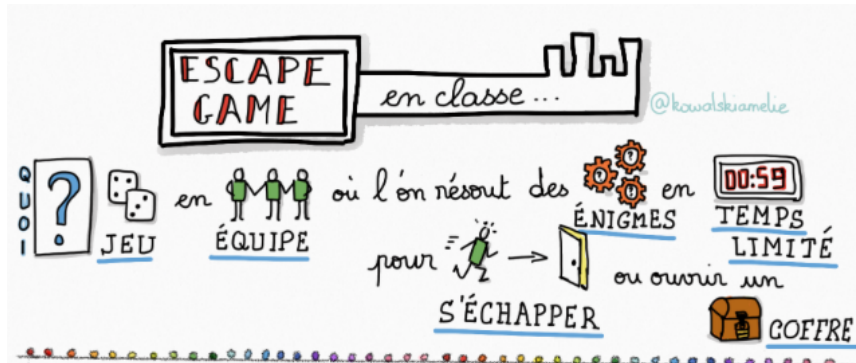 ESCAPE
GAME
en classe...
@kowalskiamelie
QUOI
?
JEU en ÉQUIPE où l'on résout des ÉNIGMES en 00:59 TEMPS
LIMITÉ
pour S'ÉCHAPPER ou ouvrir un
COFFRE